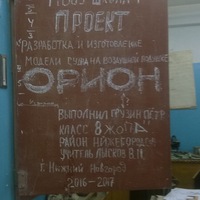 ПРОЕКТ
РАЗРАБОТКА И ИЗГОТОВЛЕНИЕ
МОДЕЛИ СУДНА НА ВОЗДУШНОЙ ПОДУШКЕ
ОРИОН
ВЫПОЛНИЛ ГРУЗИН ПЁТР
КЛАСС 8
РАЙОН НИЖЕГОРОДС
УЧИТЕЛЬ
Г. НИЖНИЙ НОВГОРОД
2016-2017